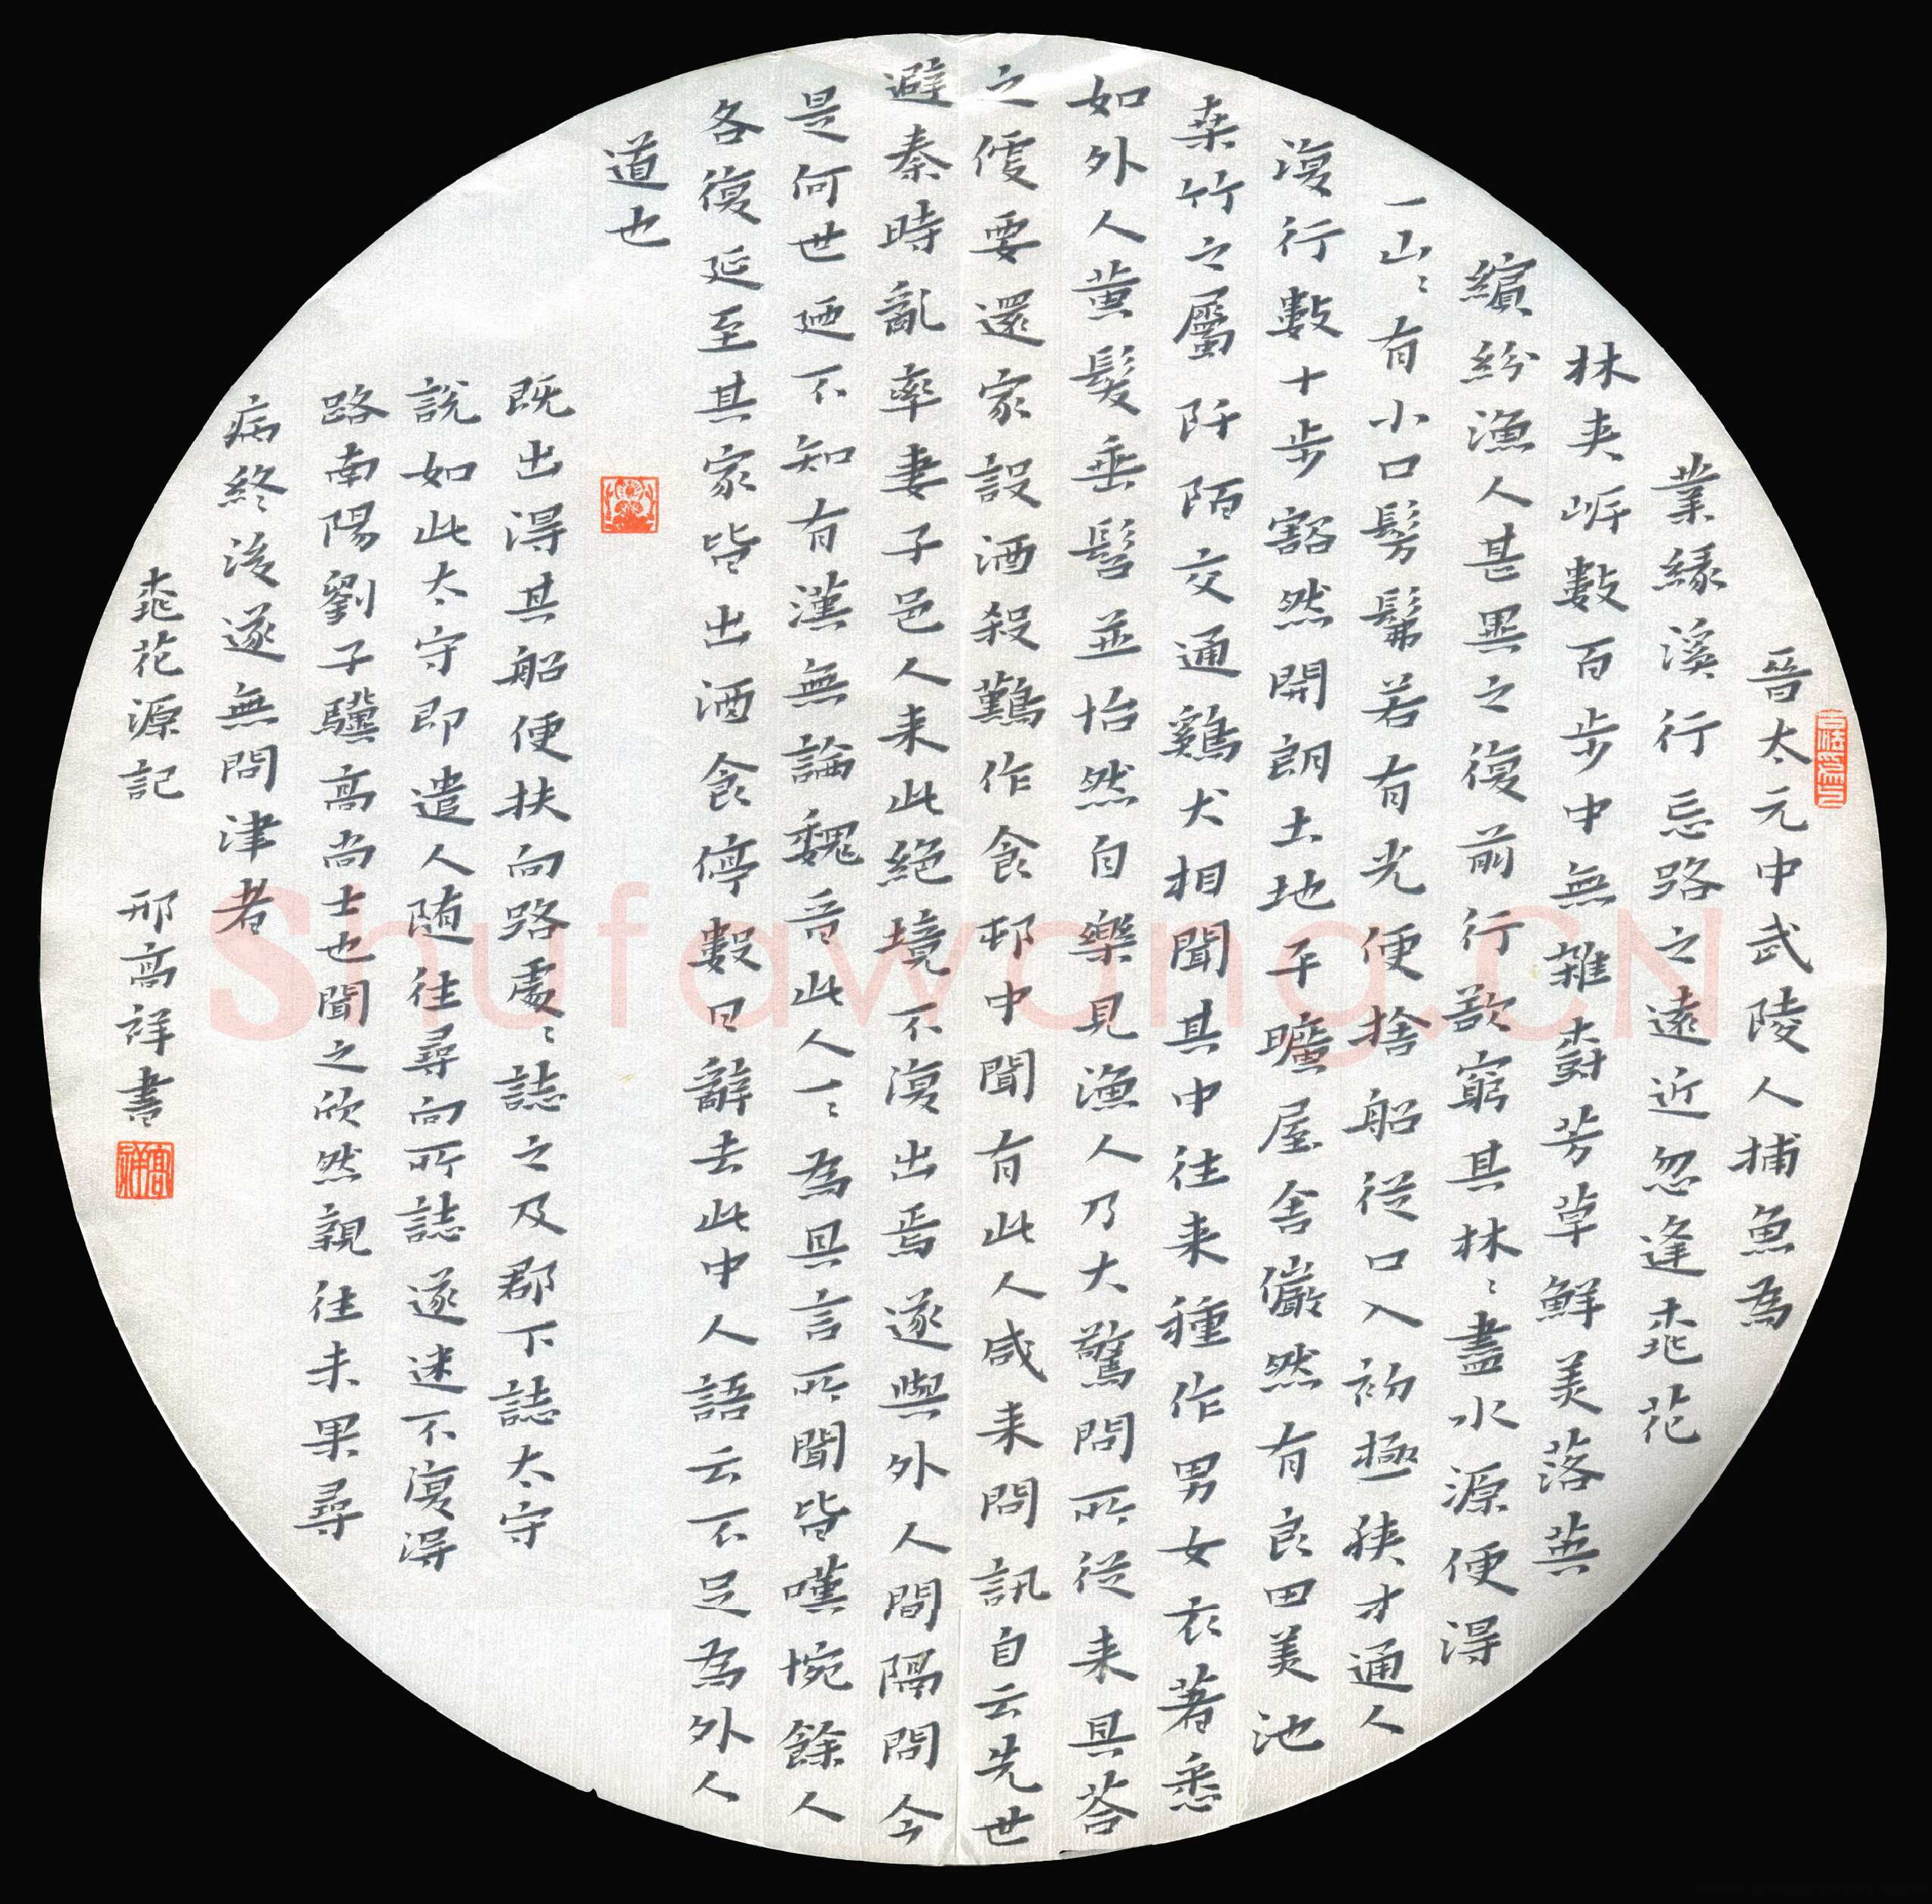 晉太元中武陵人捕魚為
業緣溪行忘路之遠近忽逢桃花
林夹岸數百步中無雜樹芳草鮮美落英
繽紛漁人甚異之復前行欲窮其林〻盡水源便得
一山〻有小口髣髴若有光便捨船從口入初極狹才通人
復行數十步豁然開朗土地平曠屋舍儼然有良田美池
桑竹之屬阡陌交通鷄犬相聞其中往来種作男女衣著悉
如外人黄髮垂髫並怡然自樂見漁人乃大驚問所從来具荅
之便要還家設酒殺鷄作食邨中聞有此人咸来問訊自云先世
避秦時亂率妻子邑人来此絕境不復出焉遂與外人間隔問今
是何世迺不知有漢無論魏晉此人一〻為具言所聞皆嘆惋餘人
各復延至其家皆出酒食停數日辭去此中人語云不足為外人
道也
既出得其船便扶向路處〻誌之及郡下誌太守
說如此太守即遣人随往尋向所誌遂迷不復得
路南陽劉子驥高尚士也聞之欣然親往未果尋
病終後遂無問津者
桃花源記 邢高祥書
高祥
Shufawang.CN